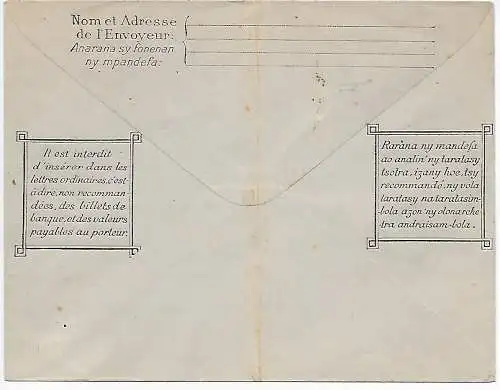 Nom et Adresse
de l'Envoyeur:
Anarana sy fonenan
ny mpandefa:
Il est interdit
d'insérer dans les
lettres ordinaires, c'est
àdire, non recomman-
dées, des billets de
banque, et des valeurs
payables au porteur.
Raràna ny mandefa
ao analin' ny taratasy
tsotra, izany hoe, tsy
recommandé, ny vola
taratasy na taratasim-
bola azon' ny olona rehe
tra andraisam-bola.